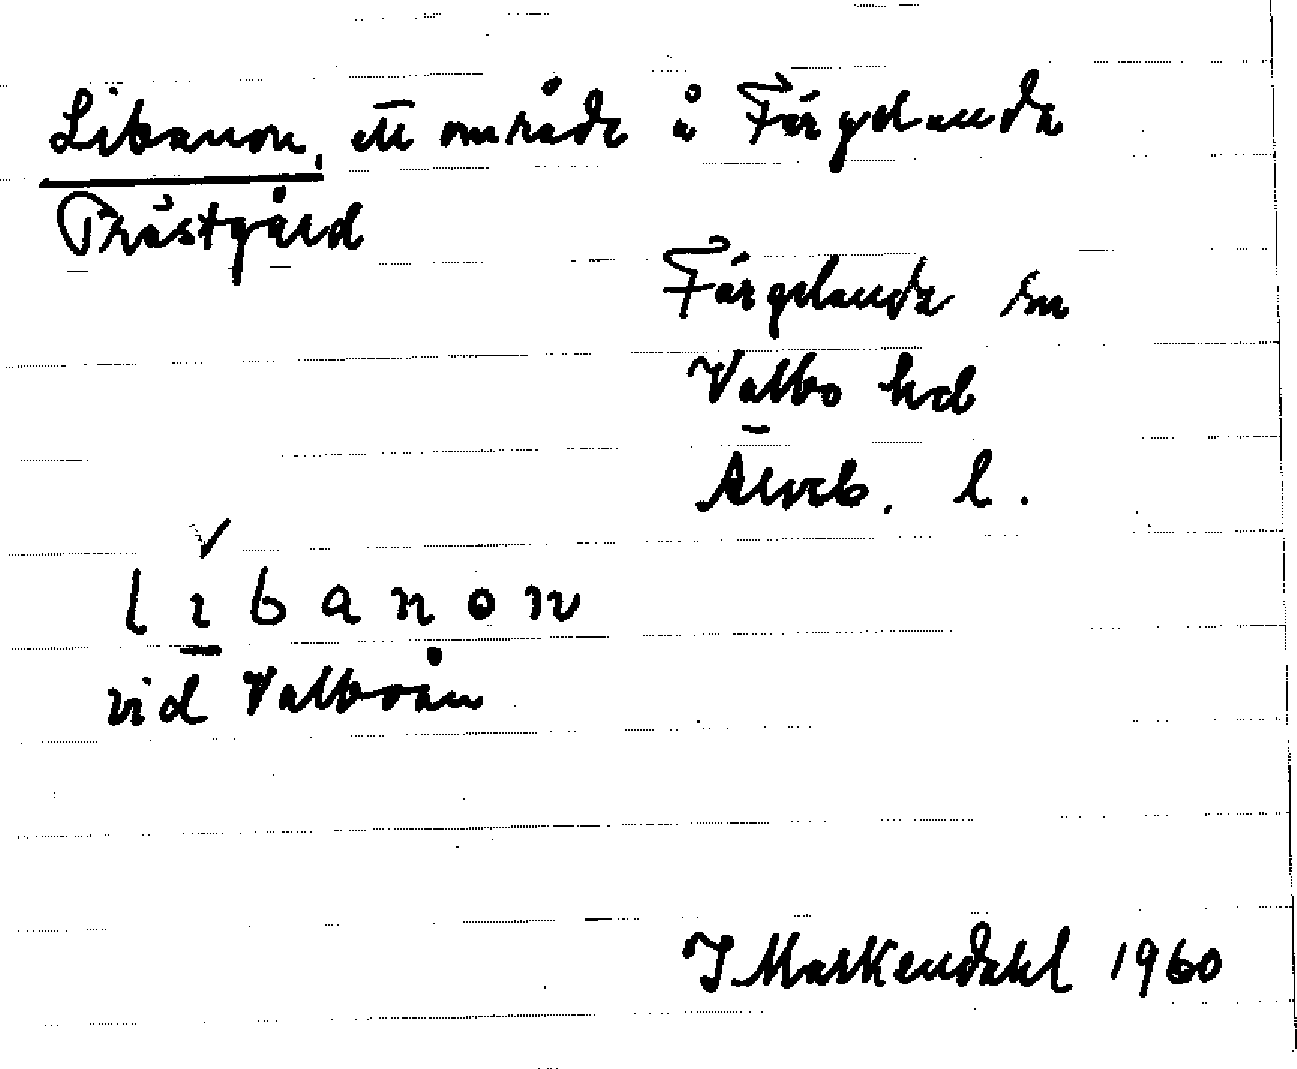 Libanon, ett område å Färgelanda
Prästgård
Färgelanda sn
Valbo hd
Älvsb. l.
l ı b a n o n
vid Valboån
J Markendahl 1960